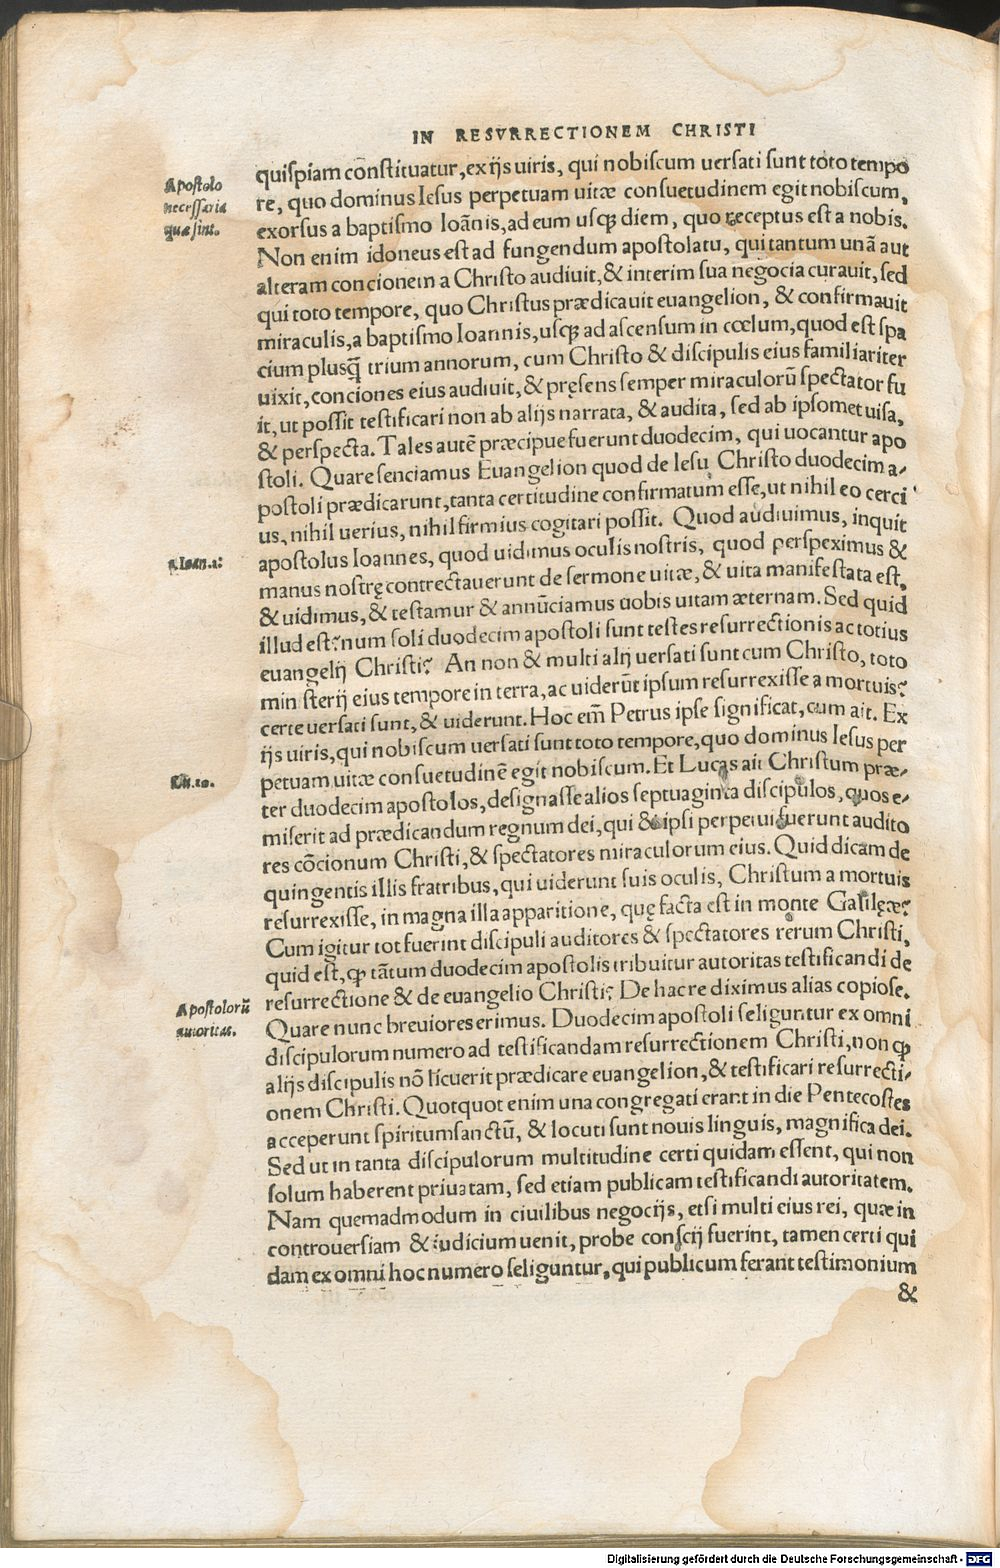 IN RESVRRECTIONEM CHRISTI
quispiam cōnstituatur, ex ijs uiris, qui nobiscum uersati sunt toto tempo
Apostolo
necessaria
quæ sint.
re, quo dominus Iesus perpetuam uitæ consuetudinem egit nobiscum,
exorsus a baptismo Ioānis, ad eum usq; diem, quo receptus est a nobis.
Non enim idoneus est ad fungendum apostolatu, qui tantum unā aut
alteram concionem a Christo audiuit, & interim sua negocia curauit, sed
qui toto tempore, quo Christus prædicauit euangelion, & confirmauit
miraculis, a baptismo Ioannis, usq; ad ascensum in cœlum, quod est spa
cium plusq̃ trium annorum, cum Christo & discipulis eius familiariter
uixit, conciones eius audiuit, & pręsens semper miraculorū spectator fu
it, ut possit testificari non ab alijs narrata, & audita, sed ab ipsomet uisa,
& perspecta. Tales autē præcipue fuerunt duodecim, qui uocantur apo
stoli. Quare senciamus Euangelion quod de Iesu Christo duodecim a-
postoli prædicarunt, tanta certitudine confirmatum esse, ut nihil eo cerci
us, nihil uerius, nihil firmius cogitari possit. Quod audiuimus, inquit
1. Ioan. 1:
apostolus Ioannes, quod uidimus oculis nostris, quod perspeximus &
manus nostrę contrectauerunt de sermone uitæ, & uita manifestata est,
& uidimus, & testamur & annūciamus uobis uitam æternam. Sed quid
illud est? num soli duodecim apostoli sunt testes resurrectionis ac totius
euangelij Christi? An non & multi alij uersati sunt cum Christo, toto
ministerij eius tempore in terra, ac uiderūt ipsum resurrexisse a mortuis?
certe uersati sunt, & uiderunt. Hoc em̄ Petrus ipse significat, cum ait. Ex
ijs uiris, qui nobiscum uersati sunt toto tempore, quo dominus Iesus per
Lu. 10.
petuam uitæ consuetudinē egit nobiscum. Et Lucas ait Christum præ-
ter duodecim apostolos, designasse alios septuaginta discipulos, quos e-
miserit ad prædicandum regnum dei, qui & ipsi perpetui fuerunt audito
res cōcionum Christi, & spectatores miraculorum eius. Quid dicam de
quingentis illis fratribus, qui uiderunt suis oculis, Christum a mortuis
resurrexisse, in magna illa apparitione, quę facta est in monte Galilęæ?
Cum igitur tot fuerint discipuli auditores & spectatores rerum Christi,
quid est, ꝙ tātum duodecim apostolis tribuitur autoritas testificandi de
Apostolorū
autoritas.
resurrectione & de euangelio Christi? De hac re diximus alias copiose.
Quare nunc breuiores erimus. Duodecim apostoli seliguntur ex omni
discipulorum numero ad testificandam resurrectionem Christi, non ꝙ
alijs discipulis nō licuerit prædicare euangelion, & testificari resurrecti-
onem Christi. Quotquot enim una congregati erant in die Pentecostes
acceperunt spiritum sanctū, & locuti sunt nouis linguis, magnifica dei.
Sed ut in tanta discipulorum multitudine certi quidam essent, qui non
solum haberent priuatam, sed etiam publicam testificandi autoritatem.
Nam quemadmodum in ciuilibus negocijs, etsi multi eius rei, quæ in
controuersiam & iudicium uenit, probe conscij fuerint, tamen certi qui
dam ex omni hoc numero seliguntur, qui publicum ferant testimonium
&
Digitalisierung gefördert durch die Deutsche Forschungsgemeinschaft - DFG